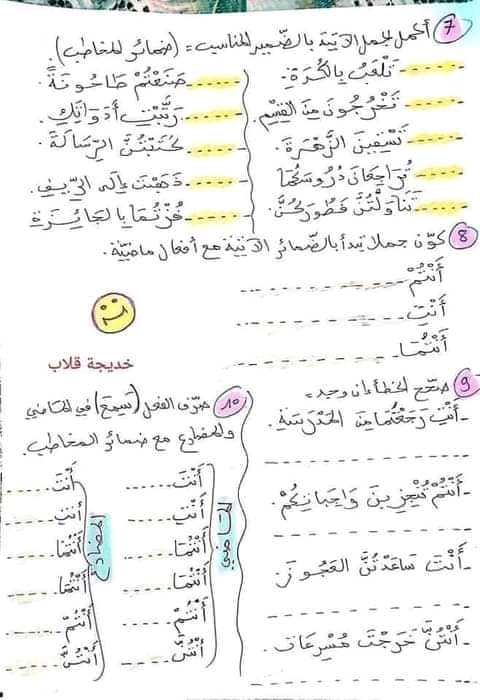 7 أكمل الجمل الآتية بالضمير المناسب = (ضمائر المخاطب).
........ تَلْعَبُ بِالْكُرَةِ.
........ تَخْرُجُونَ مِنَ القِسْمِ.
........ تَسْقِينَ الزَّهْرَةَ.
........ تُرَاجِعَانِ دُرُوسَكُمَا
........ تَنَاوَلْتُنَّ فَطُورَكُنَّ.
........ صَنَعْتُمْ طَاحُونَةً.
........ رَتَّبْتِ أَدَوَاتِكِ.
........ كَتَبْتُنَّ الرِّسَالَةَ.
........ ذَهَبْتَ إِلَى الرِّيفِ.
........ فُزْتُمَا بِالجَائِزَةِ
8 كوّن جملا تبدأ بالضّمائر الآتية مع أفعال ماضيّة.
أَنْتُمْ ........
أَنْتِ ........
أَنْتُمَا ........
خديجة قلاب
9 صحّح الخطأ إن وجد =
- أَنْتِ رَجَعْتُمَا مِنَ المَدْرَسَةِ.
- أَنْتُمْ تُنْجِزِينَ وَاجِبَاتِكُمْ.
- أَنْتَ سَاعَدْتُنَّ العَجُوزَ
- أَنْتُنَّ خَرَجْتَ مُسْرِعَاتٍ.
10 صرّف الفعل (سَمِعَ) في الماضي
والمضارع مع ضمائر المخاطب.
الماضي
أَنْتَ ........
أَنْتِ ........
أَنْتُمَا ........
أَنْتُمَا ........
أَنْتُمْ ........
أَنْتُنَّ ........
المضارع
أَنْتَ ........
أَنْتِ ........
أَنْتُمَا ........
أَنْتُمَا ........
أَنْتُمْ ........
أَنْتُنَّ ........